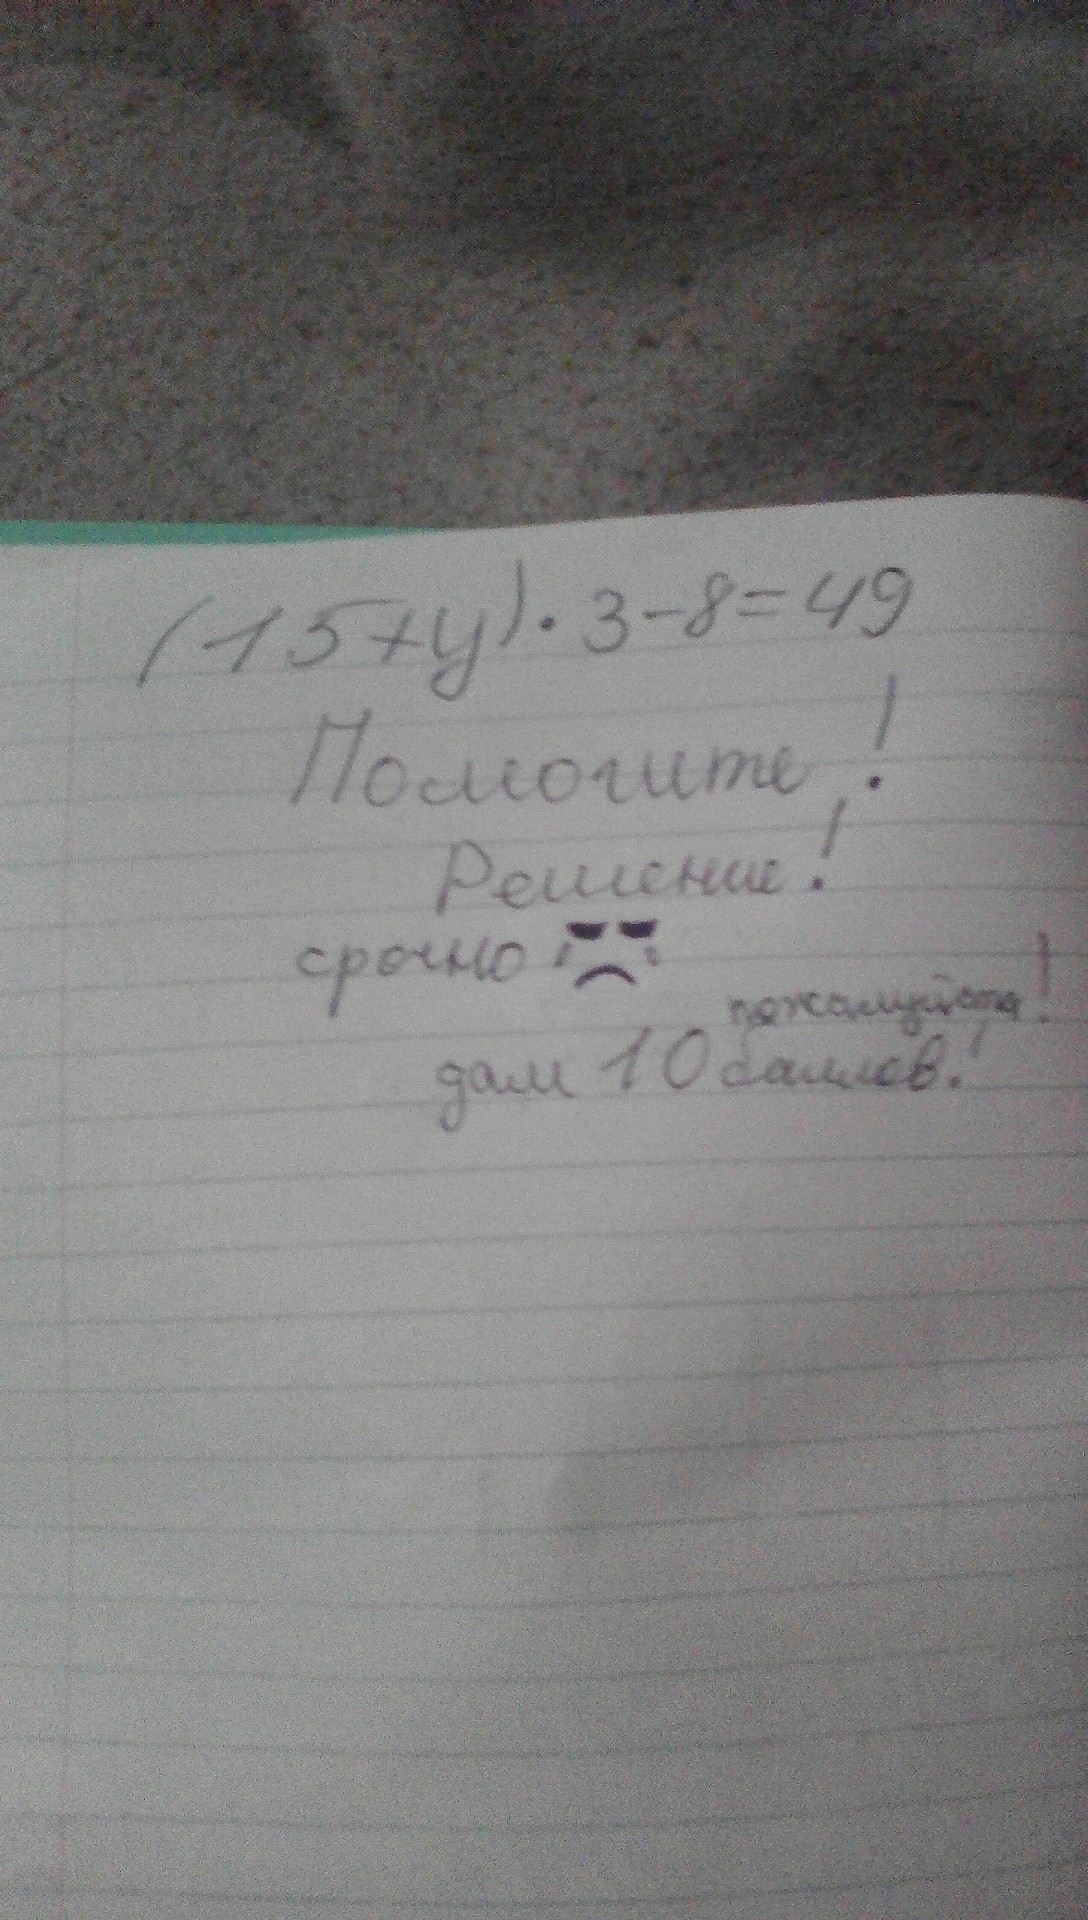 (15+y)·3-8=49
Помогите!
Решение!
срочно
пожалуйста!
дам 10 баллов!